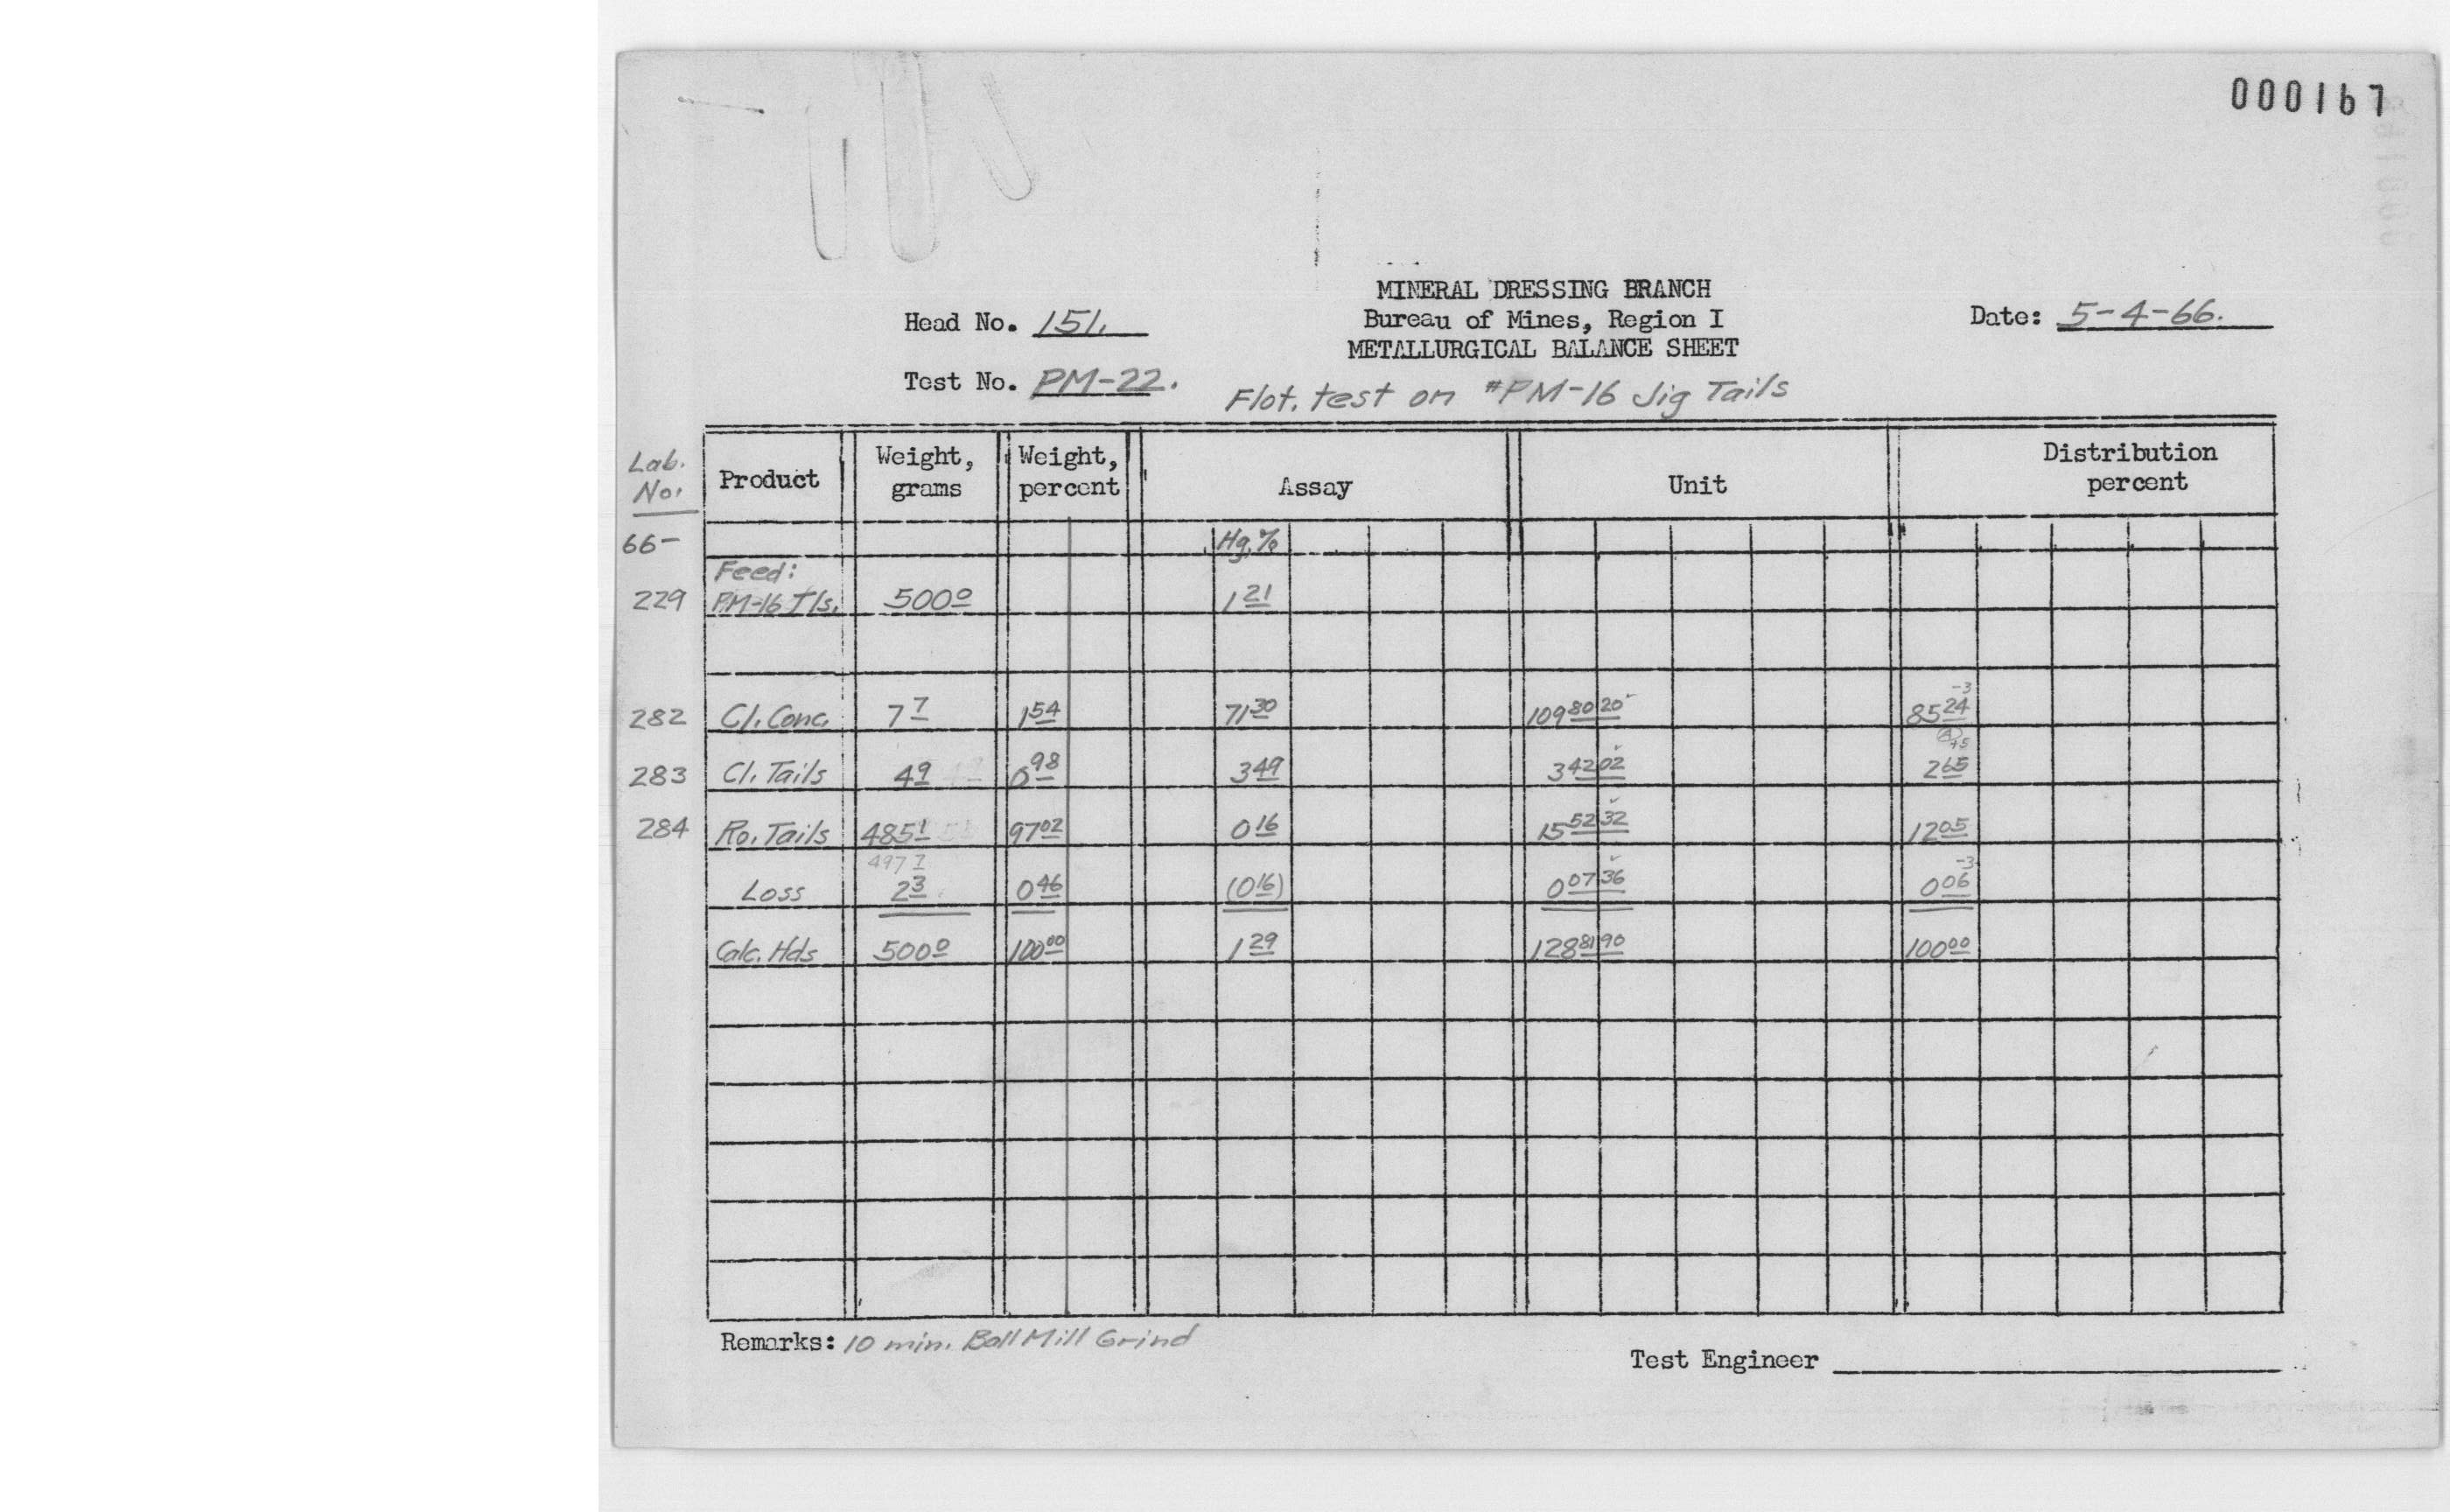 000167
MINERAL DRESSING BRANCH
Head No. 151. Bureau of Mines, Region I Date: 5-4-66.
METALLURGICAL BALANCE SHEET
Test No. PM-22. Flot. test on #PM-16 Jig Tails
Lab. No. Product Weight, grams Weight, percent Assay Unit Distribution percent
66- Hg,%
Feed:
229 PM-16 Tls. 500 0 1 21
-3
282 Cl. Conc. 7 7 1 54 71 30 109 80 20 85 24
+5
283 Cl. Tails 4 9 0 98 3 49 3 42 02 2 65
284 Ro. Tails 485 1 97 02 0 16 15 52 32 12 05
497 7 -3
Loss 2 3 0 46 (0 16) 0 07 36 0 06
Calc. Hds 500 0 100 00 1 29 128 81 90 100 00
Remarks: 10 min. Ball Mill Grind
Test Engineer